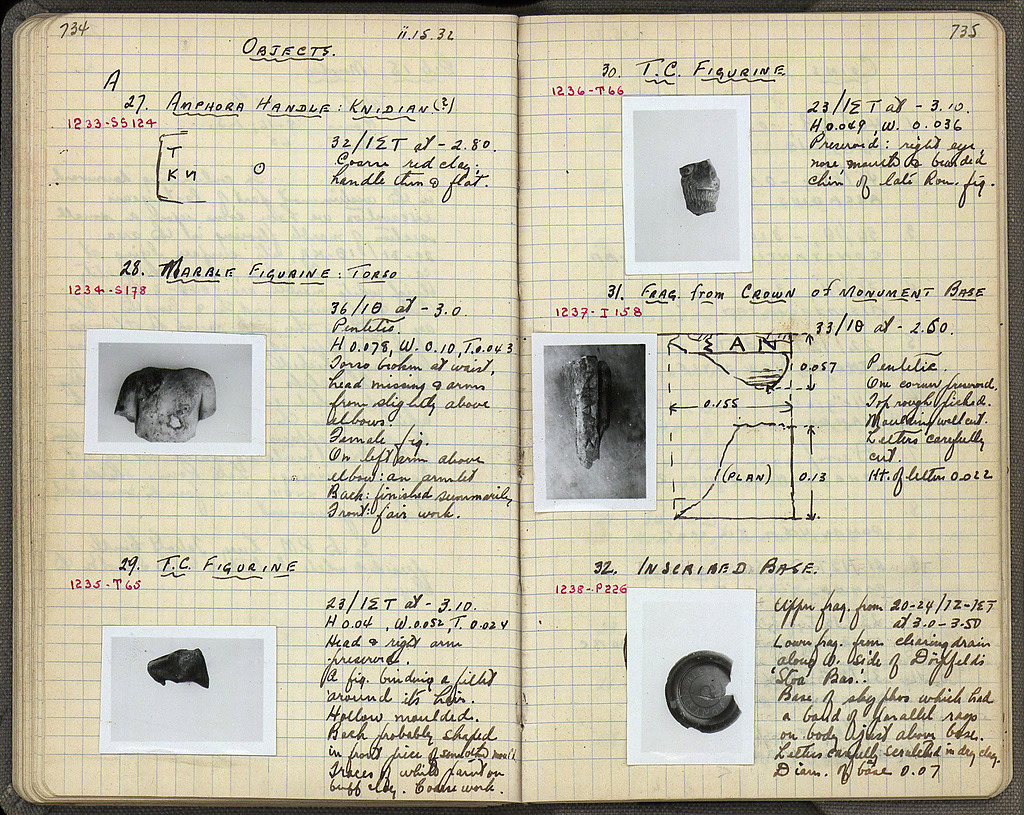 734
ii.15.32
OBJECTS.
A
27. AMPHORA HANDLE: KNIDIAN(?)
1233-SS124
T
K N
32/ΙΣΤ at -2.80.
Coarse red clay;
handle thin & flat.
28. MARBLE FIGURINE: TORSO
1234-S178
36/ΙΘ at -3.0.
Pentelic.
H 0.078, W. 0.10, T. 0.043
Torso broken at waist,
head missing & arms
from slightly above
elbows.
Female fig.
On left arm above
elbow: an armlet
Back: finished summarily
Front: fair work.
29. T.C. FIGURINE
1235-T65
23/ΙΣΤ at -3.10.
H 0.04, W. 0.052, T. 0.024
Head & right arm
preserved.
A fig. binding a fillet
around its hair.
Hollow moulded.
Back probably shaped
in front piece of mould
Traces of white paint on
buff clay. Coarse work.
735
30. T.C. FIGURINE
1236-T66
23/ΙΣΤ at -3.10.
H 0.049, W. 0.036
Preserved: right eye,
nose, mouth & bearded
chin of late Rom. fig.
31. FRAG. from CROWN of MONUMENT BASE
1237-I 158
33/ΙΘ at -2.60.
A N
0.057
0.155
(PLAN)
0.13
Pentelic.
One corner preserved.
Top rough picked.
Moulding well cut.
Letters carefully
cut.
Ht. of letters 0.022
32. INSCRIBED BASE.
1238-P226
Upper frag. from 20-24/ΙΖ-ΙΣΤ
at 3.0-3.50
Lower frag. from clearing drain
along W. side of Dörpfeld's
'Stoa Bas.'.
Base of skyphos which had
a band of parallel rays
on body just above base.
Letters carefully scratched in dry clay.
Diam. of base 0.07